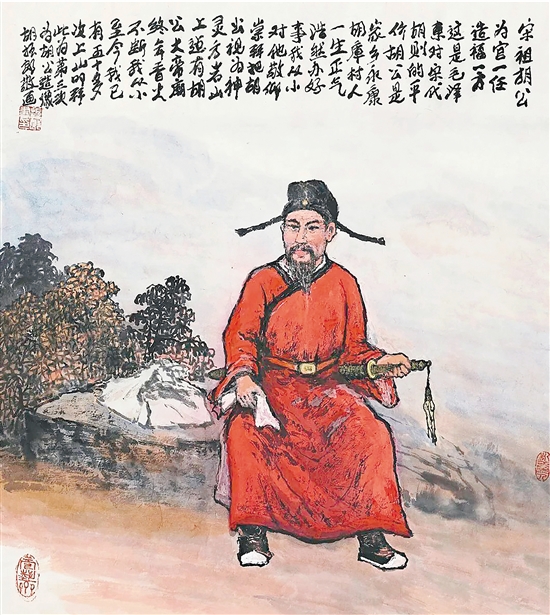 宋祖胡公
为官一任
造福一方
这是毛泽
东对宋代
胡则的平
价胡公是
家乡永康
胡库村人
一生正气
浩然办好
事我从小
对他敬仰
崇拜把胡
公视为神
灵方岩山
上建有胡
公大帝庙
终年香火
不断我从小
至今我已
有五十多
次上山叩拜
此为第三次
为胡公造像
胡振郎画